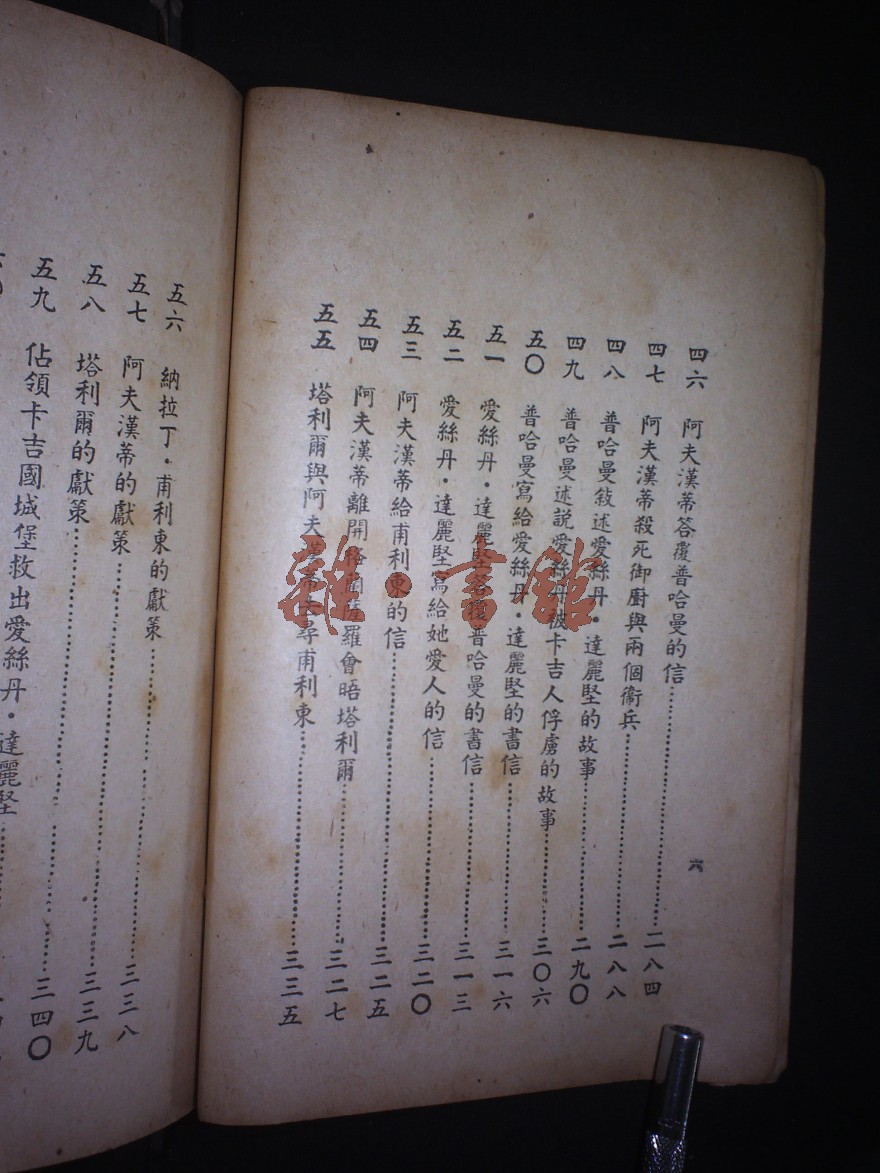 六
四六 阿夫漢蒂答覆普哈曼的信……二八四
四七 阿夫漢蒂殺死御廚與兩個衞兵……二八八
四八 普哈曼敍述愛絲丹·達麗堅的故事……二九〇
四九 普哈曼述說愛絲丹被卡吉人俘虜的故事……三〇六
五〇 普哈曼寫給愛絲丹·達麗堅的書信……三一六
五一 愛絲丹·達麗堅答覆普哈曼的書信……三一三
五二 愛絲丹·達麗堅寫給她愛人的信……三二〇
五三 阿夫漢蒂給甫利東的信……三二五
五四 阿夫漢蒂離開羅會晤塔利爾……三二七
五五 塔利爾與阿夫漢蒂去尋甫利東……三三五
五六 納拉丁·甫利東的獻策……三三八
五七 阿夫漢蒂的獻策……三三九
五八 塔利爾的獻策……三四〇
五九 佔領卡吉國城堡救出愛絲丹·達麗堅……
雜·書館